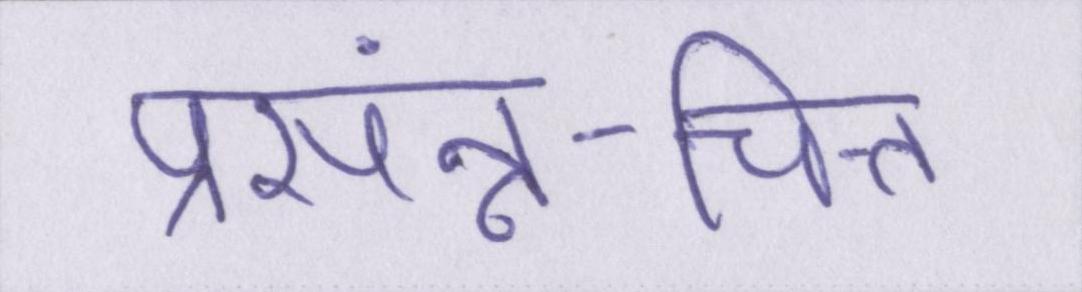 प्रसंन्न-चित्त